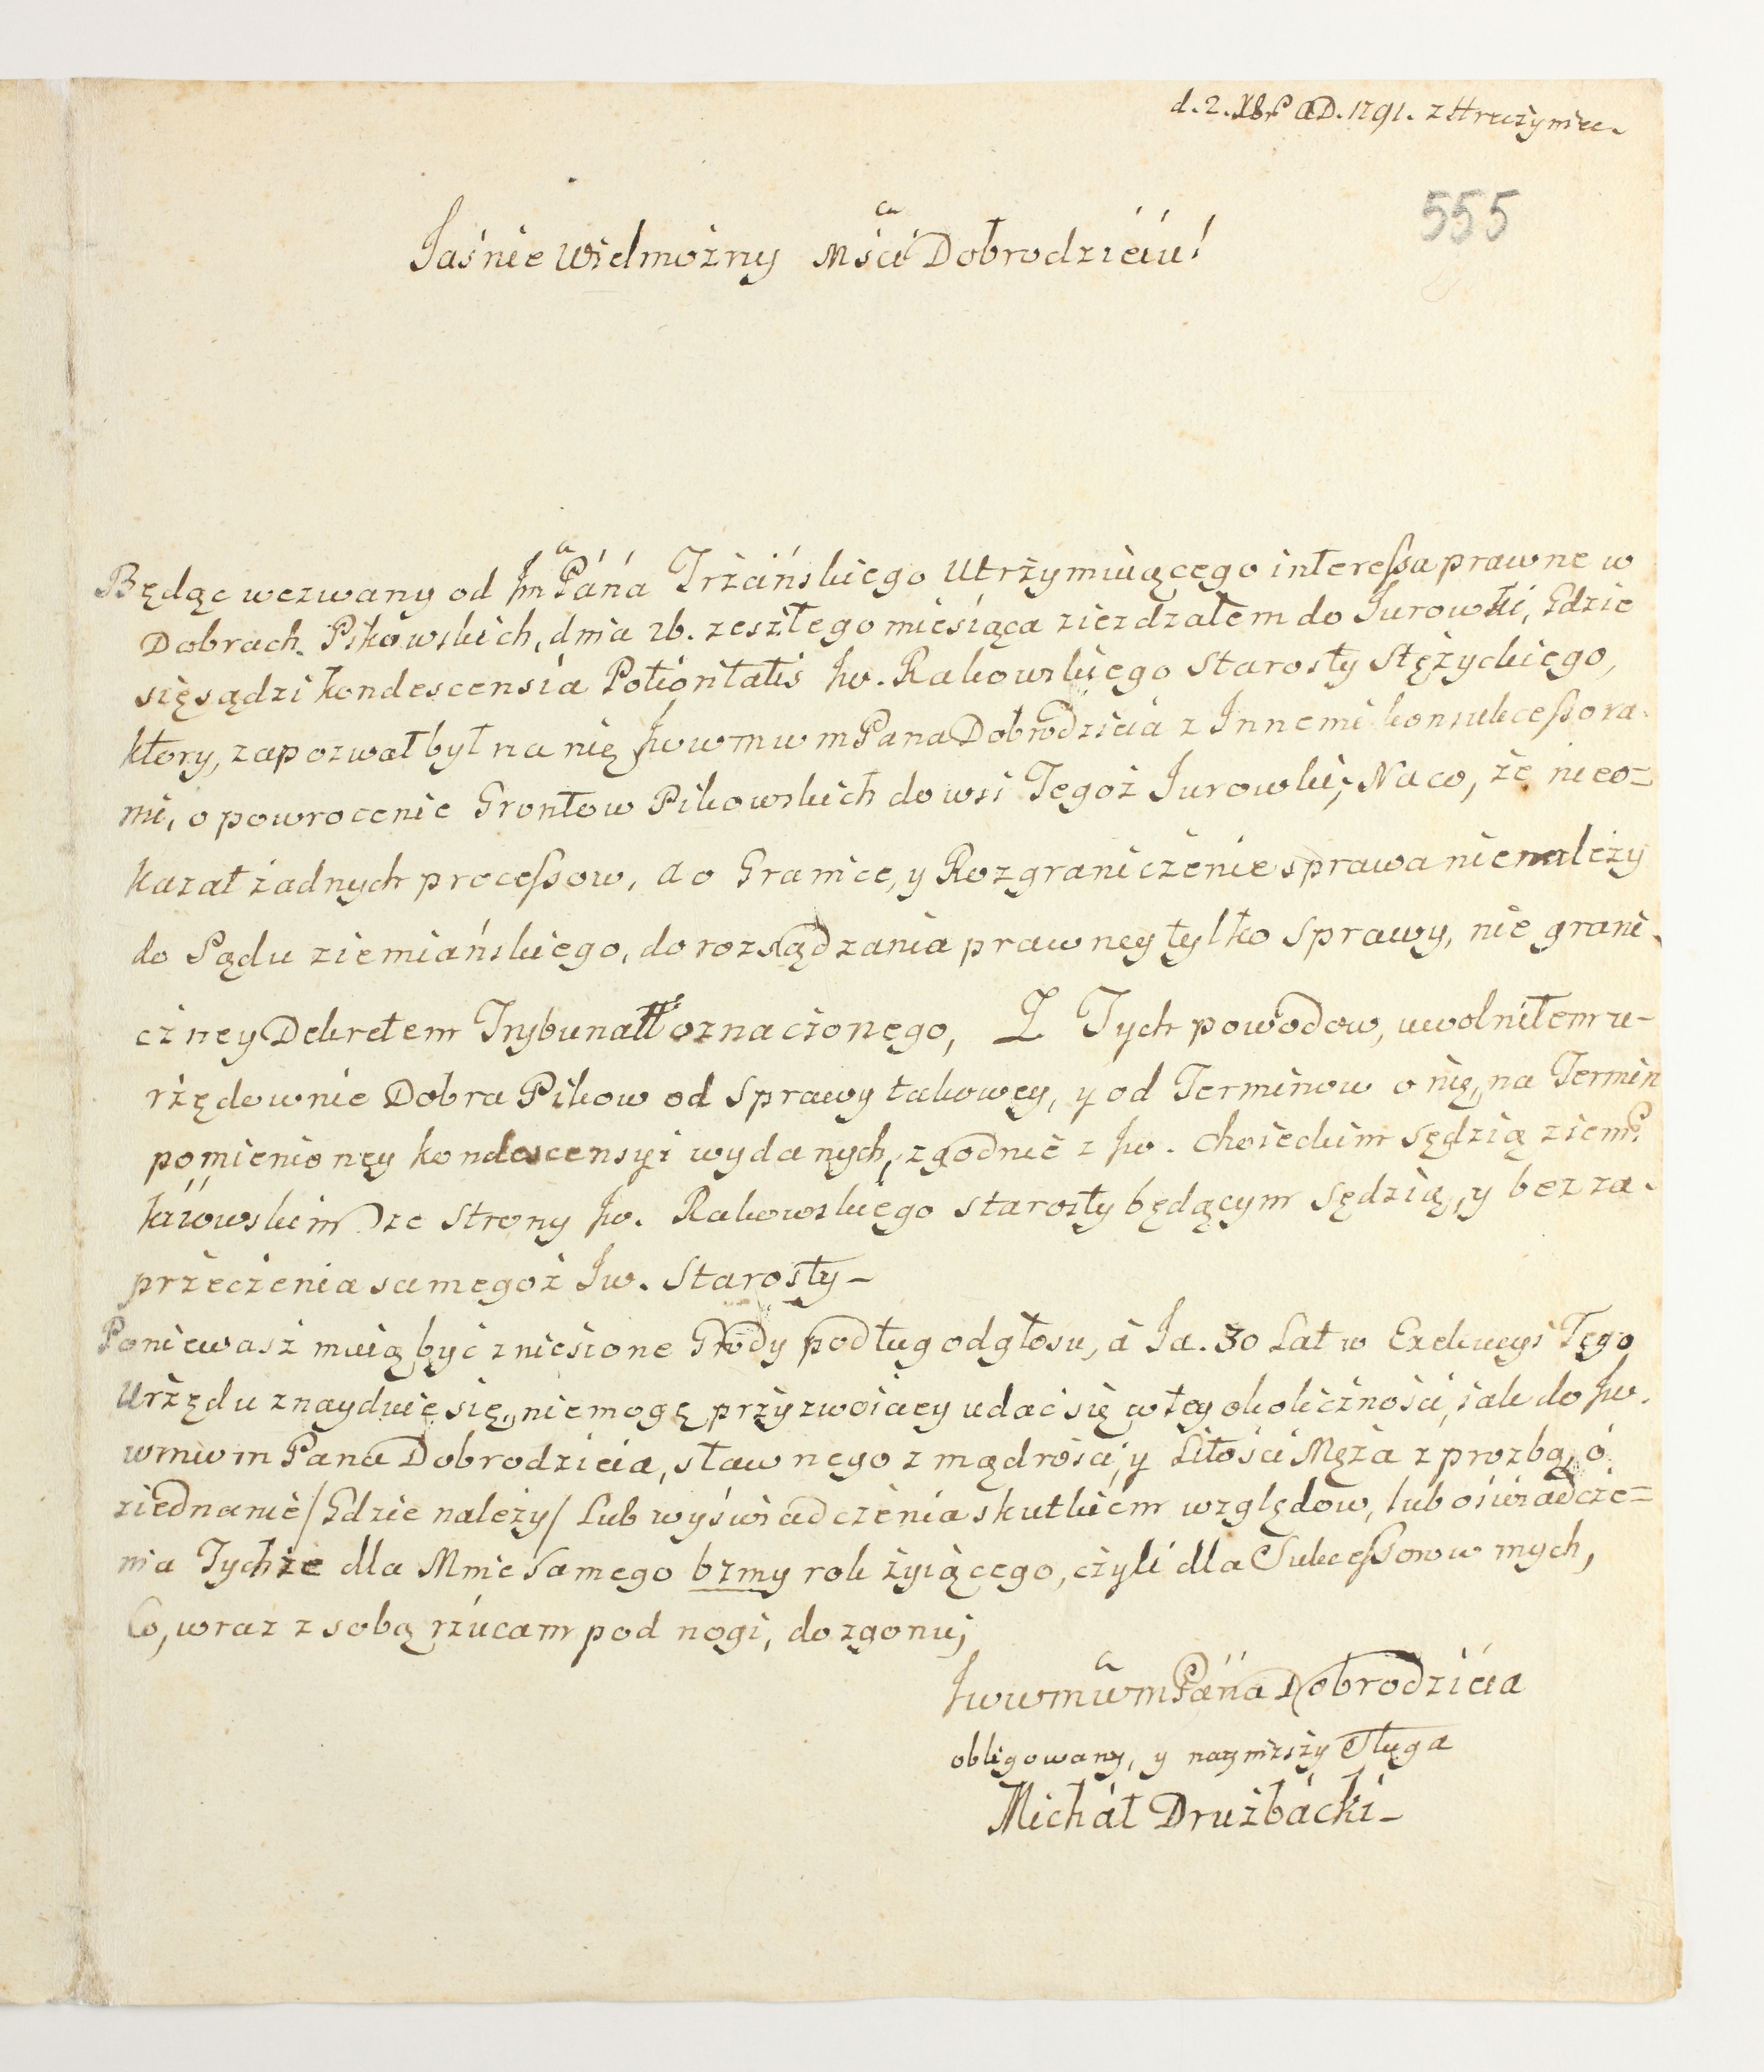 d. 2. Xbr. AD. 1791. z Hruzyniec.
555
Jaśnie Wielmożny Mści Dobrodzieiu!
Będąc wezwany od Jm Pána Trzáńskiego Utrzymuiącęgo interessa prawne w
Dobrach Pikowskich, dnia 26. zeszłego miesiąca ziezdzałem do Jurowki, Gdzie
się sądzi kondescensia Potioritatis Jw. Rakowskiego Starosty Stężyckięgo,
ktory, zapozwał był na nię Jwwmwm Pana Dobrodzieia z Jnnemi konsukcessora-
mi, o powrocenie Grontow Pikowskich do wsi Tegoż Jurowki; Na co, że nieo=
kazał żadnych processow, a o Granice, y Rozgraniczenie sprawa nienależy
do Sądu ziemiańskiego, do rozsądzania prawney tylko Sprawy, nie grani-
czney Dekretem Trybunałł oznaczonęgo, Z Tych powodow, uwolniłem u-
rzędownie Dobra Pikow od Sprawy takowey, y od Terminow o nię, na Termin
pomienionęy kondescensyi wydanych, zgodnie z Jw. Choieckim Sędzią ziem:
kiiowskim ze Strony Jw. Rakowskięgo Starosty będącym Sędzią, y bez za-
przeczenia samegoż Jw. Starosty-
Poniewasz muią być zniesione Grody podług odgłosu, á Ja. 30 Lat w Exekucyi Tęgo
Urzędu znayduię się, niemogę przyzwoiciey udać się w tey okoliczności, iak do Jw.
wmwm Pana Dobrodzieia, sławnego z mądrości, y Litości Męża z prozbą, o
ziednanie / Gdzie należy / Lub wyświadczenia skutkiem względow, lub oświadcze=
nia Tychże dla Mnie Samego bzmy rok żyiącego, czyli dla Sukcessorow mych,
Co, wraz z sobą rzucam pod nogi, do zgonu;
Jwwmwm Pána Dobrodzieia
obligowany, y nayniższy Sługa
Michał Drużbácki-